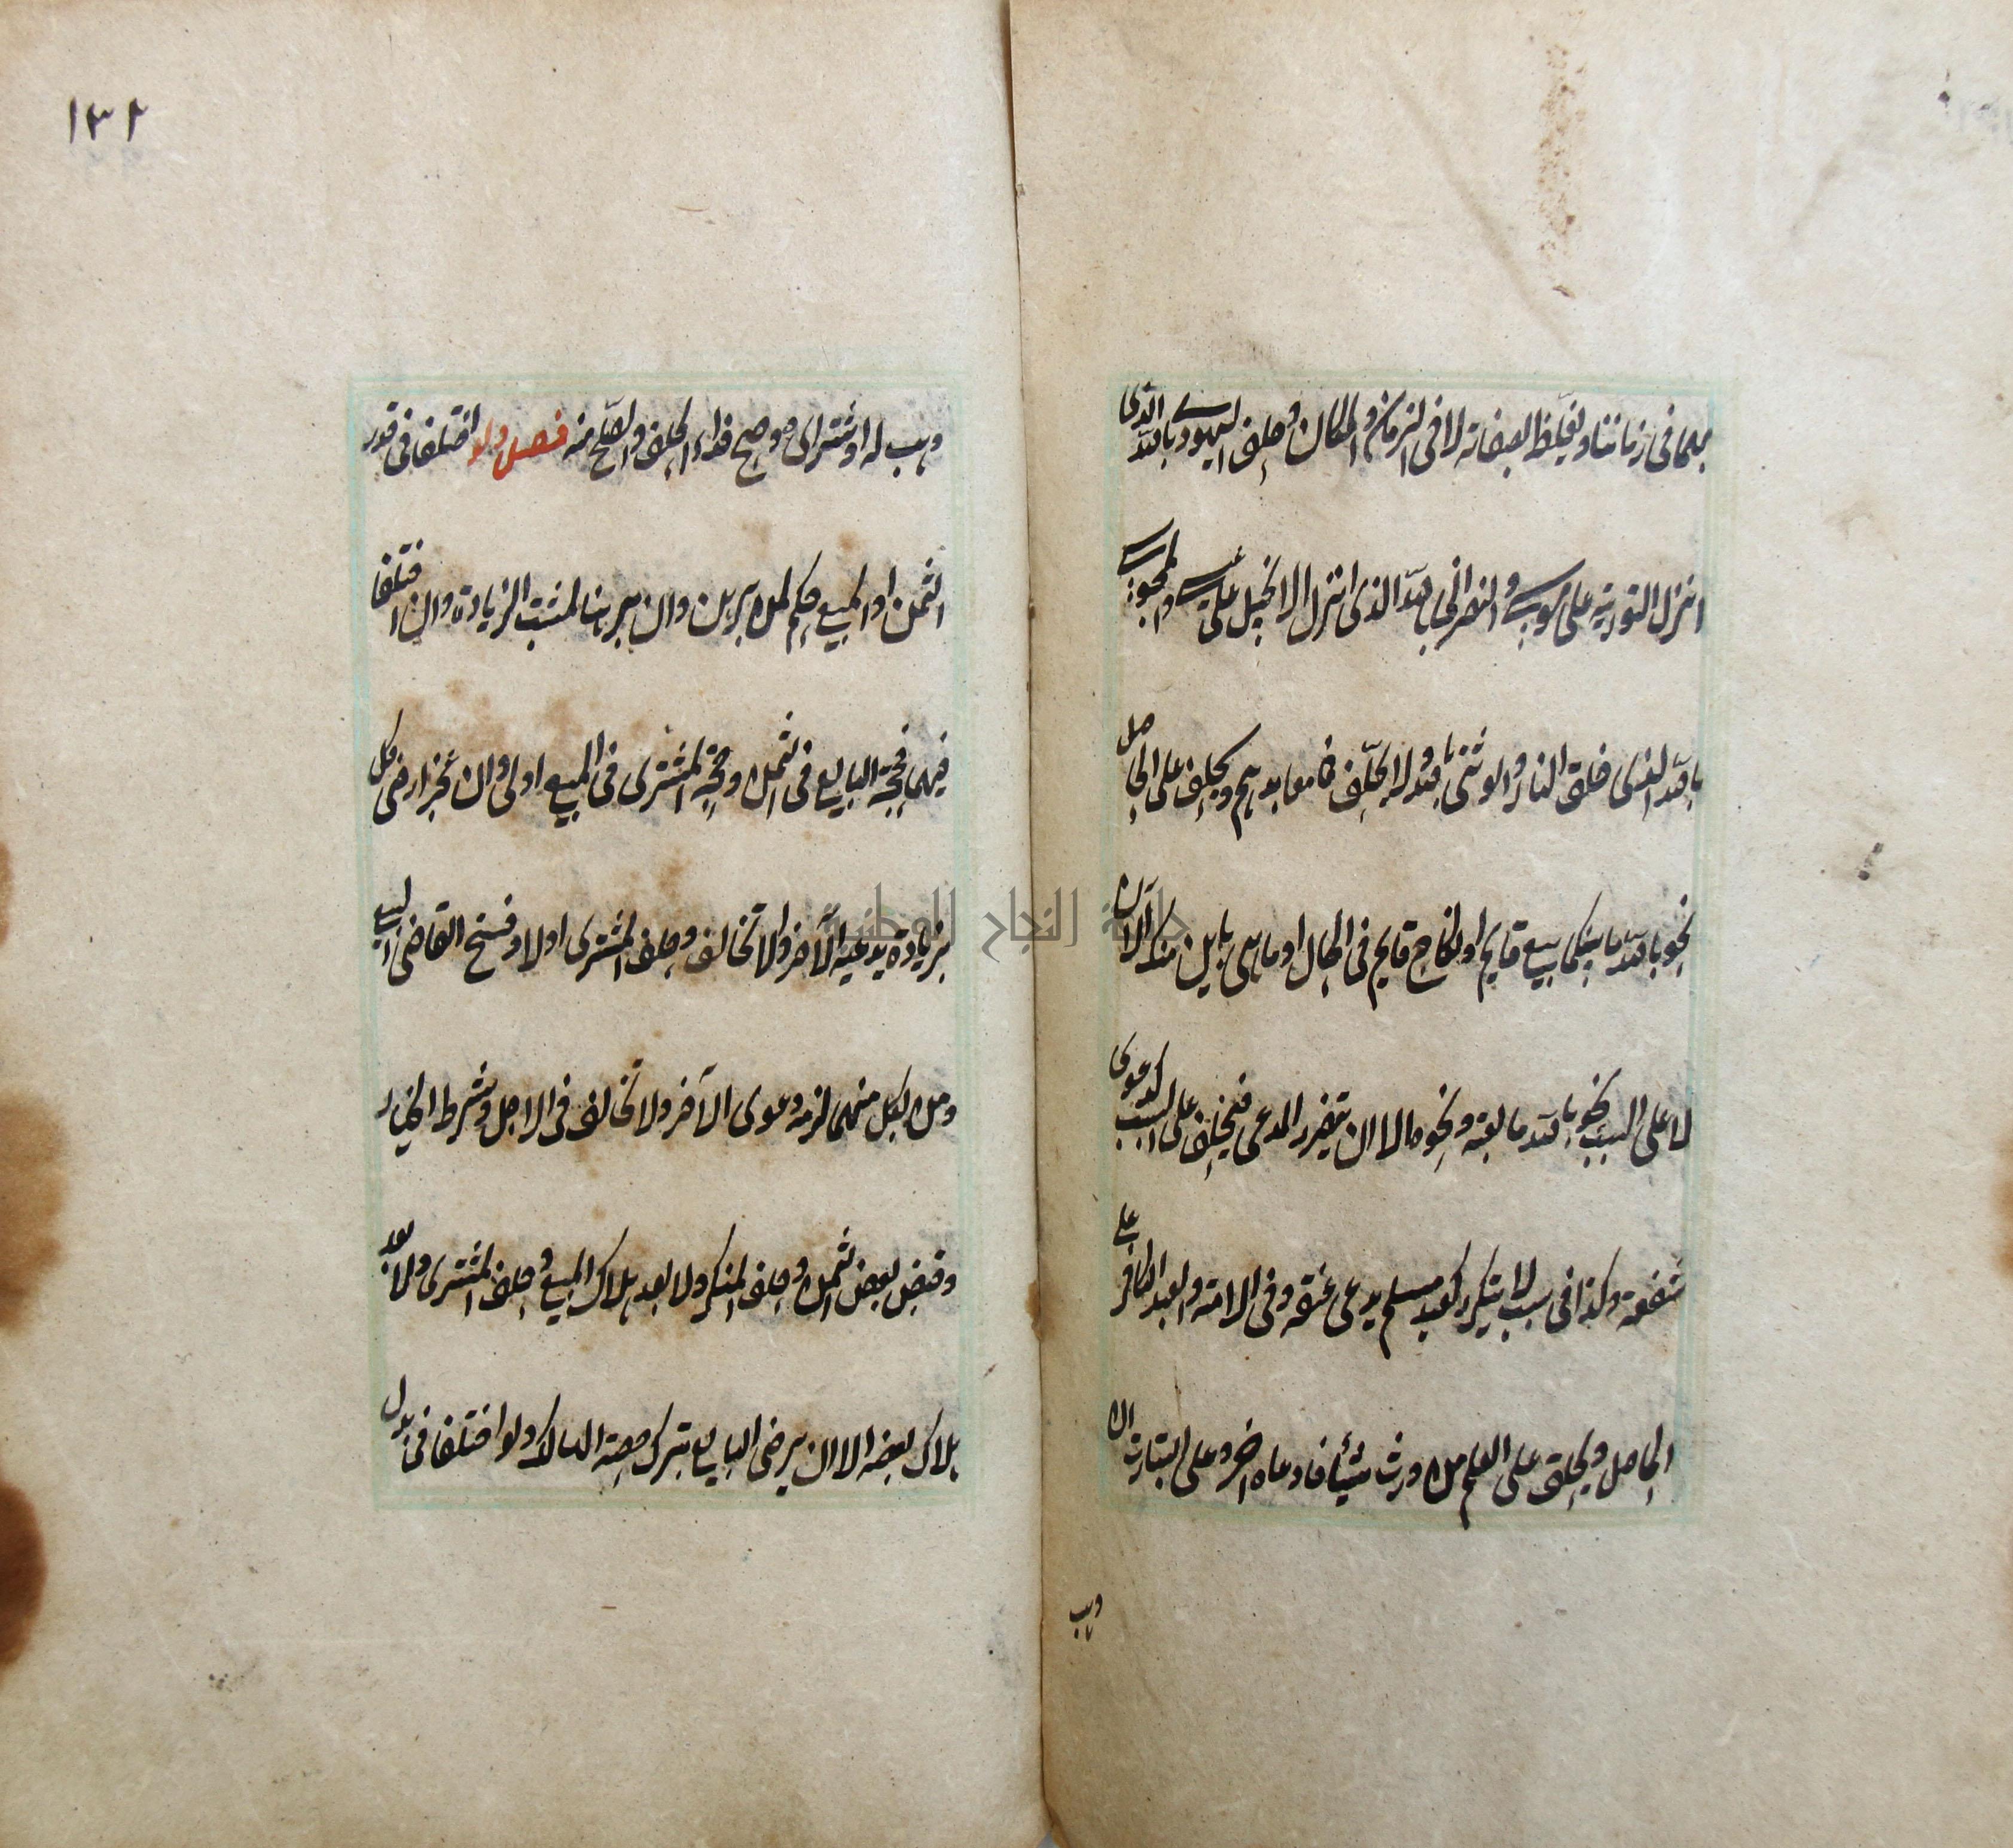 بهما فى زماننا وتغلظ بصفاته لا فى الزمان والمكان وحلف اليهود بالله الذى
انزل التورية على موسى والنصرانى بالله الذى انزل الانجيل على عيسى والمجوسى
بالله الذى خلق النار والوثنى بالله ولا يحلف فى معابدهم ويحلف على الحاصل
نحو بالله ما بينكما بيع قايم او نكاح قايم فى الحال او ما هى باين منك الآن
لا على السبب نحو بالله ما بعته ونحوه الا ان يتضرر المدعى فيحلف على السبب كدعوى
شفعة وكذا فى سبب لا يتكرر كعبد مسلم يدعى عتقه وفى الامة والعبد الكافر على
الحاصل ويحلف على العلم من ورث شيئا فادعاه اخر وعلى البتات ان
وهب
١٣٢
وهب له او شترى وصح فداء الحلف والصلح منه فصل ولو اختلفا فى قدر
الثمن او المبيع حكم لمن برهن وان برهنا لمثبت الزيادة وان اختلفا
فيهما فحجة البايع فى الثمن وحجة المشترى فى المبيع اولى وان عجزا رضى كل
بزيادة يدعيه الآخر والا تحالفا وحلف المشترى اولا وفسخ القاضى البيع
ومن نكل منهما لزمه دعوى الآخر ولا تحالف فى الاجل وشرط الخيار
وقبض بعض الثمن وحلف المنكر ولا بعد هلاك المبيع وحلف المشترى ولا بعد
هلاك بعضه الا ان يرضى البايع بترك حصة الهالك ولو اختلفا فى بدل
جامعة النجاح الوطنية